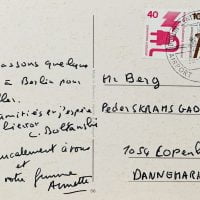 assons quelque
à Berlin pour
ller.
amitiés et j'espère
C. Boltanski
amicalement à vous
et
votre femme
Annette
40
Mr. Berg
PEDERSKRAMS GAD
1054 COPENH
DANNEMARK